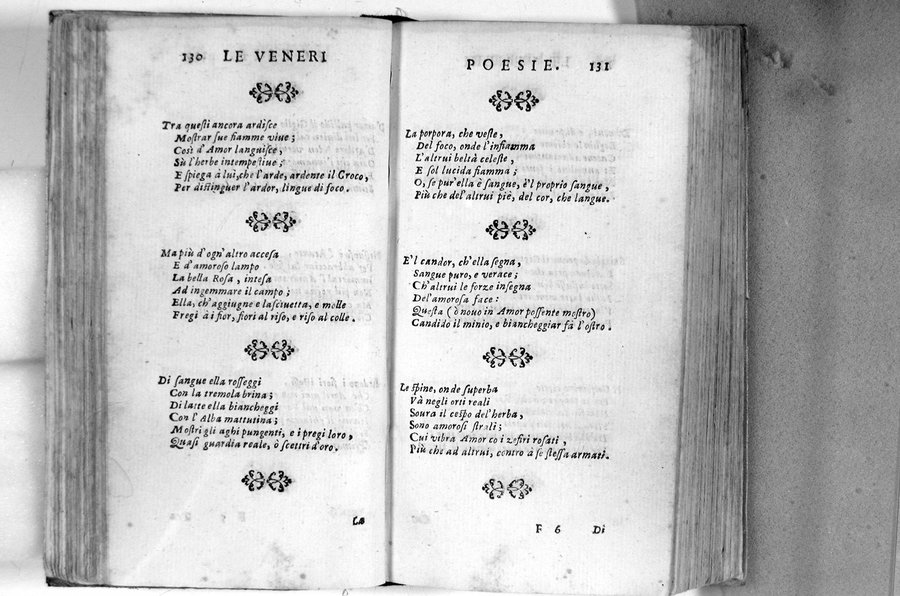 130 LE VENERI
Tra questi ancora ardisce
Mostrar sue fiamme viue;
Così d'Amor languisce,
Sù l'herbe intempestiue;
E spiega à lui, che l'arde, ardente il Croco,
Per distinguer l'ardor, lingue di foco.
Ma più d'ogn'altro accesa
E d'amoroso lampo
La bella Rosa, intesa
Ad ingemmare il campo;
Ella, ch'aggiugne e lasciuetta, e molle
Fregi à i fior, fiori al riso, e riso al colle.
Di sangue ella rosseggi
Con la tremola brina;
Di latte ella biancheggi
Con l'Alba mattutina;
Mostri gli aghi pungenti, e i pregi loro,
Quasi guardia reale, ò scettri d'oro.
La
POESIE. 131
La porpora, che veste,
Del foco, onde l'infiamma
L'altrui beltà celeste,
E sol lucida fiamma;
O, se pur'ella è sangue, è'l proprio sangue,
Più che del'altrui piè, del cor, che langue.
E'l candor, ch'ella segna,
Sangue puro, e verace;
Ch'altrui le forze insegna
Del'amorosa face:
Questa (ò nouo in Amor possente mostro)
Candido il minio, e biancheggiar fà l'ostro.
Le spine, onde superba
Và negli orti reali
Soura il cespo del'herba,
Sono amorosi strali;
Cui vibra Amor co i zefiri rosati,
Più che ad altrui, contro à se stessa armati.
F 6 Di